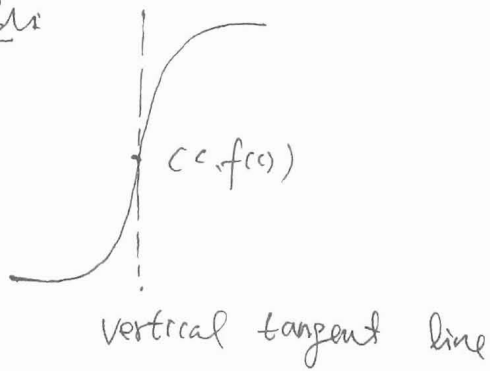 (c, f(c))
vertical tangent line